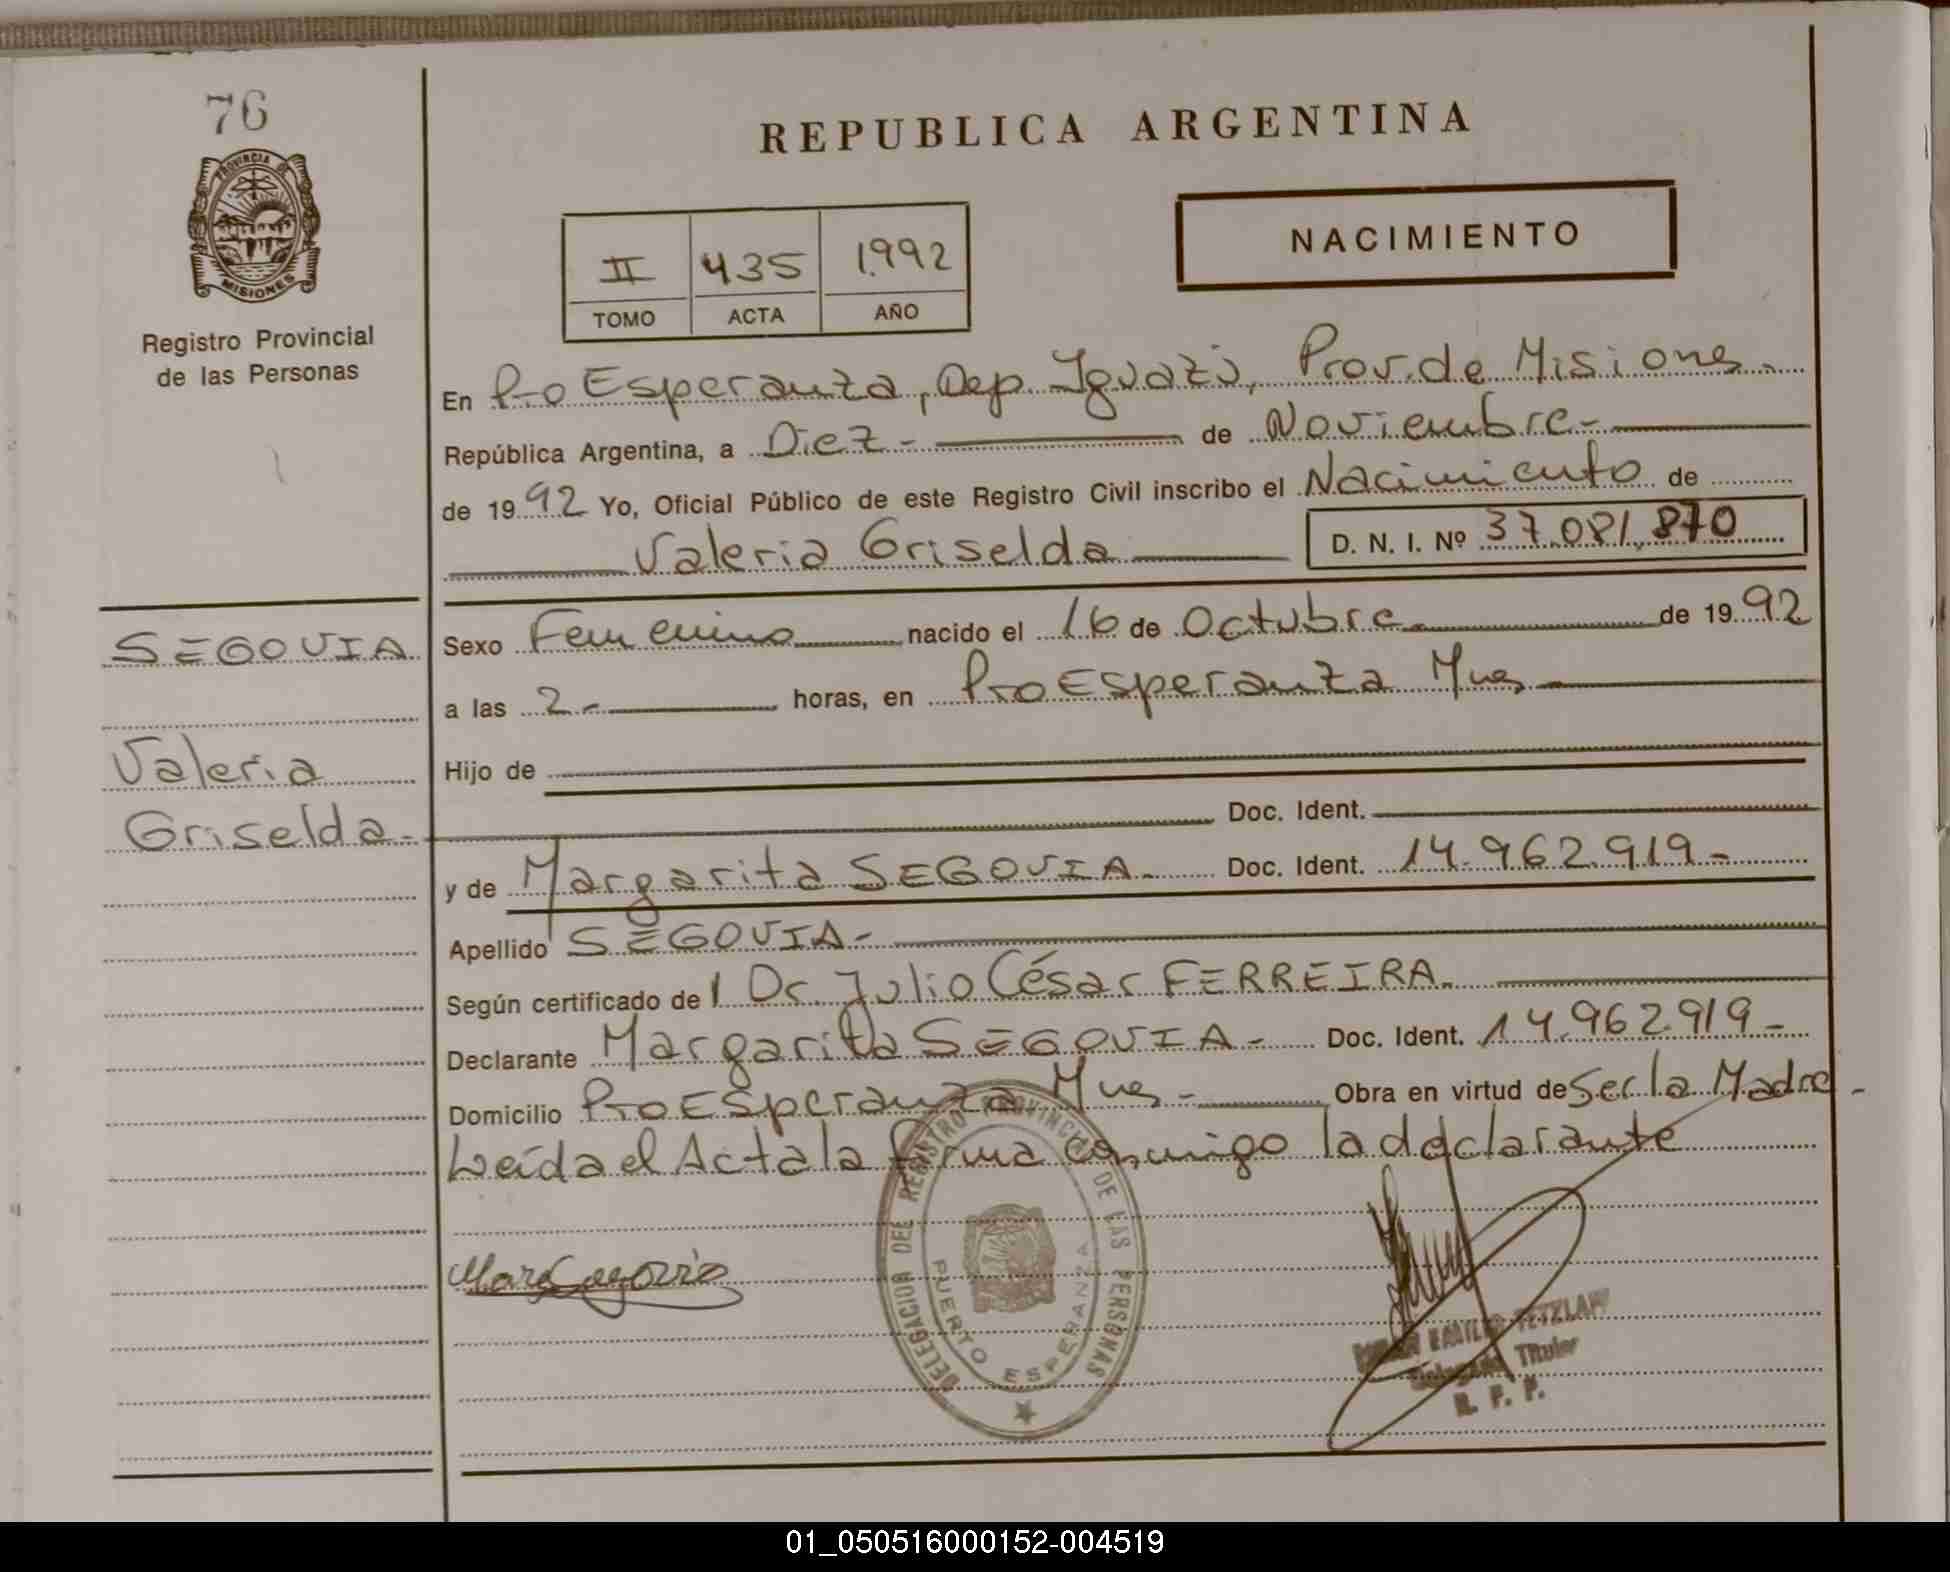 76
PROVINCIA DE
MISIONES
Registro Provincial
de las Personas
REPUBLICA ARGENTINA
II 435 1992
TOMO ACTA AÑO
NACIMIENTO
En Pto Esperanza, Dep. Iguazú, Prov. de Misiones.-
República Argentina, a Diez.- de Noviembre.-
de 1992 Yo, Oficial Público de este Registro Civil inscribo el Nacimiento de
Valeria Griselda D. N. I. Nº 37.081.870
SEGOVIA
Valeria
Griselda.-
Sexo Femenino nacido el 16 de Octubre.- de 1992
a las 2.- horas, en Pto Esperanza Mnes.-
Hijo de
Doc. Ident.
y de Margarita SEGOVIA.- Doc. Ident. 14.962.919.-
Apellido SEGOVIA.-
Según certificado del Dr. Julio César FERREIRA.
Declarante Margarita SEGOVIA.- Doc. Ident. 14.962.919.-
Domicilio Pto Esperanza Mnes.- Obra en virtud de Ser la Madre.-
Leída el Acta la firma conmigo la declarante
DELEGACION DEL REGISTRO PROVINCIAL DE LAS PERSONAS
PUERTO ESPERANZA
EMILIO TETZLAW
Delegado Titular
R. P. P.
01_050516000152-004519